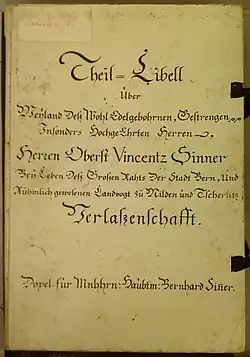 Theil=Libell
Über
Weyland Deß Wohl Edelgebohrnen, Gestrengen,
Insonders Hochgeehrten Herren
Herren Oberst Vincentz Sinner
Bey Leben Deß Großen Rahts Der Stadt Bern, Und
Rühmlich gewesenen Landvogt zu Milden und Tscherlitz
Verlaßenschafft.
Dopel für Mnhhrn: Haubtm: Bernhard Siner.